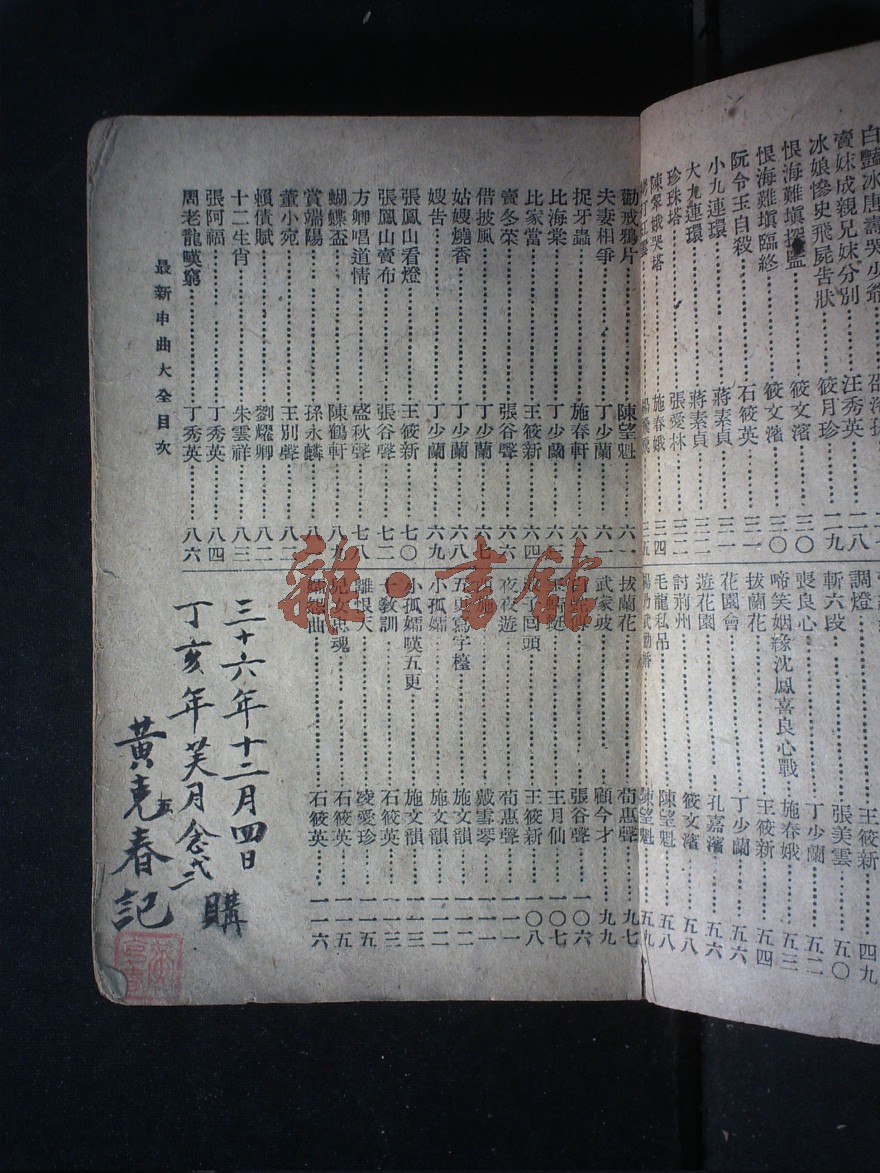 賣妹成親兄妹分別……汪秀英……二八
冰娘慘史飛屍告狀……筱月珍……二九
恨海難填探監……筱文濱……三〇
恨海難填臨終……筱文濱……三〇
阮令玉自殺……石筱英……三一
小九連環……蔣素貞……三一
大九連環……蔣素貞……三二
珍珠塔……張愛林……三二
陳翠娥哭塔……施春娥……三四
調燈……王筱新……四九
斬六段……張美雲……五〇
喪良心……丁少蘭……五二
啼笑姻緣沈鳳喜良心戰……施春娥……五三
拔蘭花……王筱新……五四
花園會……丁少蘭……五六
遊花園……孔嘉濱……五六
討荊州……筱文濱……五八
毛龍私吊……陳望魁……五八
陳望魁……五九
勸戒鴉片……陳望魁……六一
夫妻相爭……丁少蘭……六一
捉牙蟲……施春軒……六
比海棠……丁少蘭……六三
比家當……王筱新……六四
賣冬菜……張谷聲……六六
借披風……丁少蘭……六七
姑嫂燒香……丁少蘭……六八
嫂告……丁少蘭……六九
張鳳山看燈……王筱新……七〇
張鳳山賣布……張谷聲……七二
方卿唱道情……盛秋聲……七八
蝴蝶盃……陳鶴軒……八
賞端陽……孫永麟……八
董小宛……王別聲……八二
賴債賦……劉耀卿……八二
十二生肖……朱雲祥……八三
張阿福……丁秀英……八四
周老龍嘆窮……丁秀英……八六
最新申曲大全目次
拔蘭花……荀惠聲……九七
武家坡……顧今才……九九
張谷聲……一〇六
王月仙……一〇七
浪子回頭……王筱新……一〇八
夜夜遊……荀惠聲……一一一
西施……戴雪琴……一一一
五更寫字檯……施文韻……一一二
小孤孀……施文韻……一一二
小孤孀嘆五更……施文韻……一一三
十教訓……石筱英……一一三
離恨天……凌愛珍……一一五
兒女忠魂……石筱英……一一五
石筱英……一一六
三十六年十二月四日
丁亥年 月念弍 購
黃克春記
雜·書館